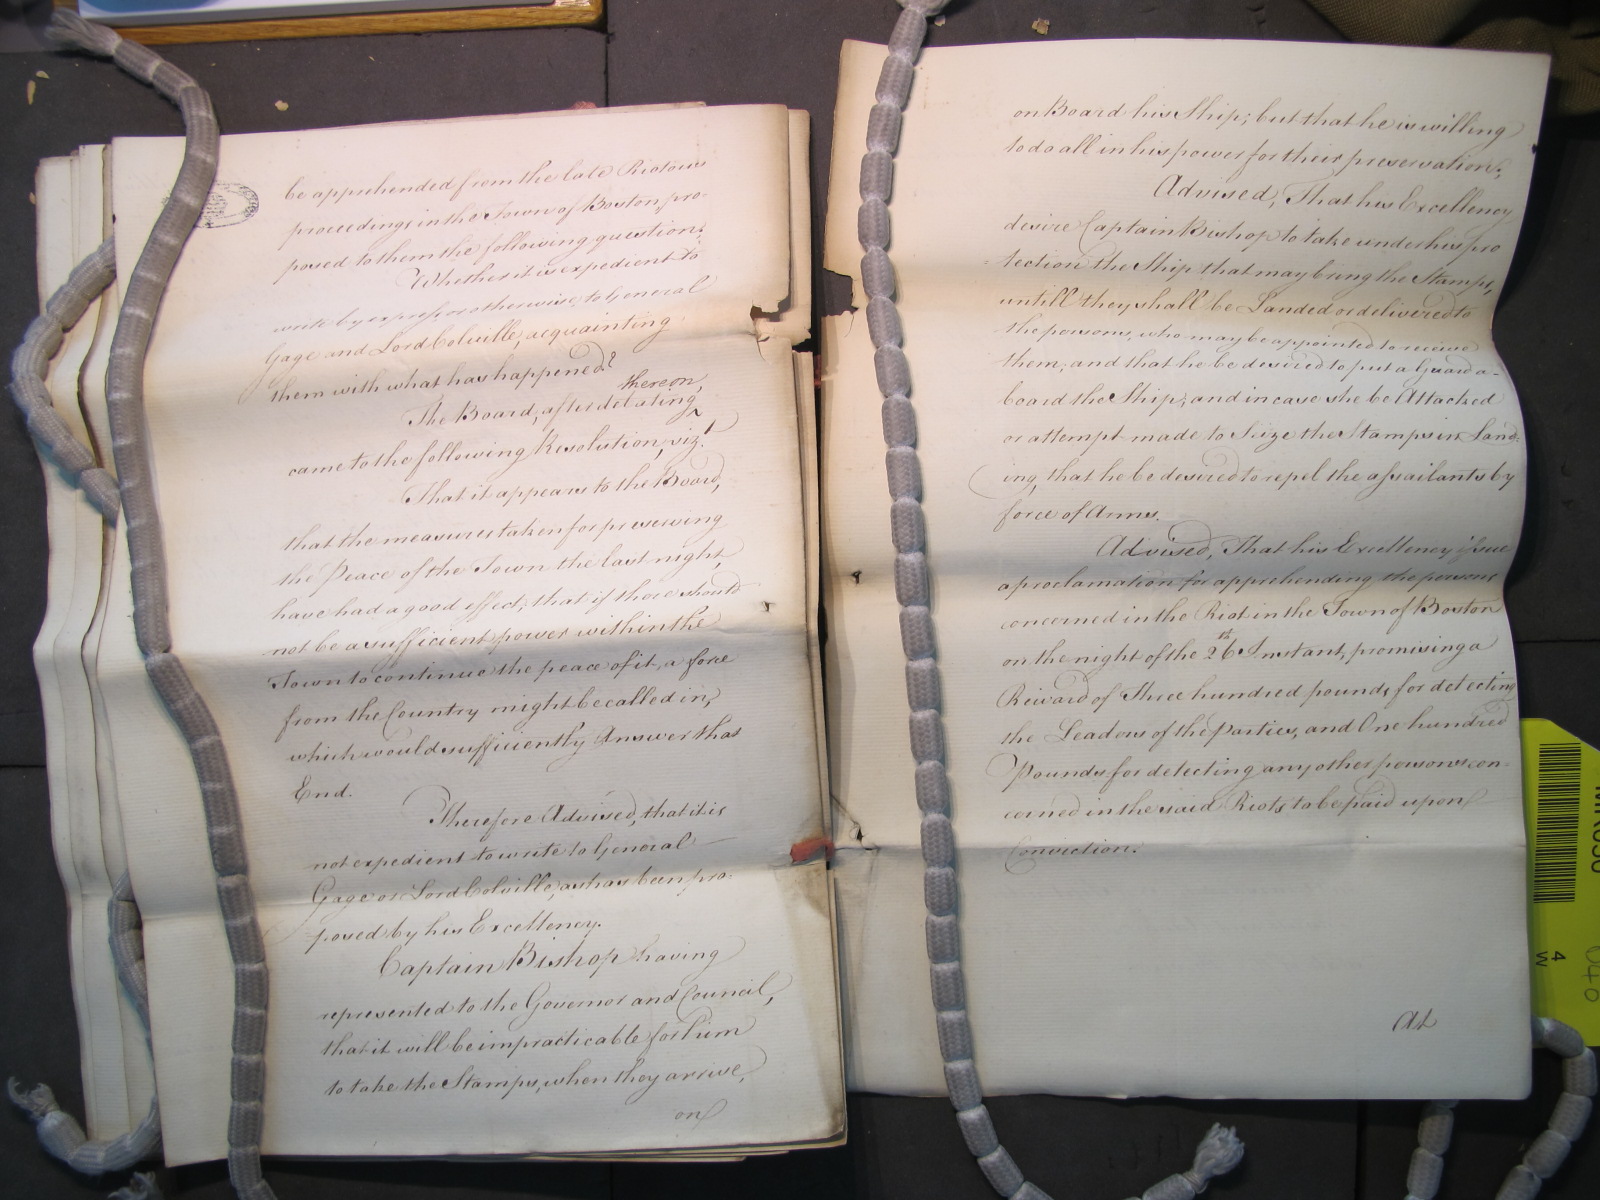 be apprehended from the late Riotous
proceedings in the Town of Boston, pro-
posed to them the following question.
Whether it is expedient to
write by express or otherwise, to General
Gage and Lord Colville, acquainting
them with what has happened?
thereon,
The Board, after debating
came to the following Resolution, vizt.
That it appears to the Board,
that the measures taken for preserving
the Peace of the Town the last night,
have had a good effect; that if there should
not be a sufficient power within the
Town to continue the peace of it, a force
from the Country might be called in,
which would sufficiently Answer that
End.
Therefore Advised, that it is
not expedient to write to General
Gage or Lord Colville, as has been pro-
posed by his Excellency.
Captain Bishop having
represented to the Governor and Council,
that it will be impracticable for him
to take the Stamps, when they arrive,
on
on Board his Ship; but that he is willing
to do all in his power for their preservation;
Advised, That his Excellency
desire Captain Bishop to take under his pro
=tection the Ship that may bring the Stamps,
untill they shall be Landed or delivered to
the persons, who may be appointed to receive
them; and that he be desired to put a Guard a-
board the Ship; and in case she be Attacked
or attempt made to Seize the Stamps in Land-
ing, that he be desired to repel the assailants by
force of Arms.
Advised, That his Excellency issue
a proclamation for apprehending the persons
concerned in the Riot in the Town of Boston
on the night of the 26th Instant, promising a
Reward of Three hundred pounds for detecting
the Leaders of the Parties, and One hundred
Pounds for detecting any other persons con-
cerned in the said Riots, to be paid upon
Conviction.
At
4
W